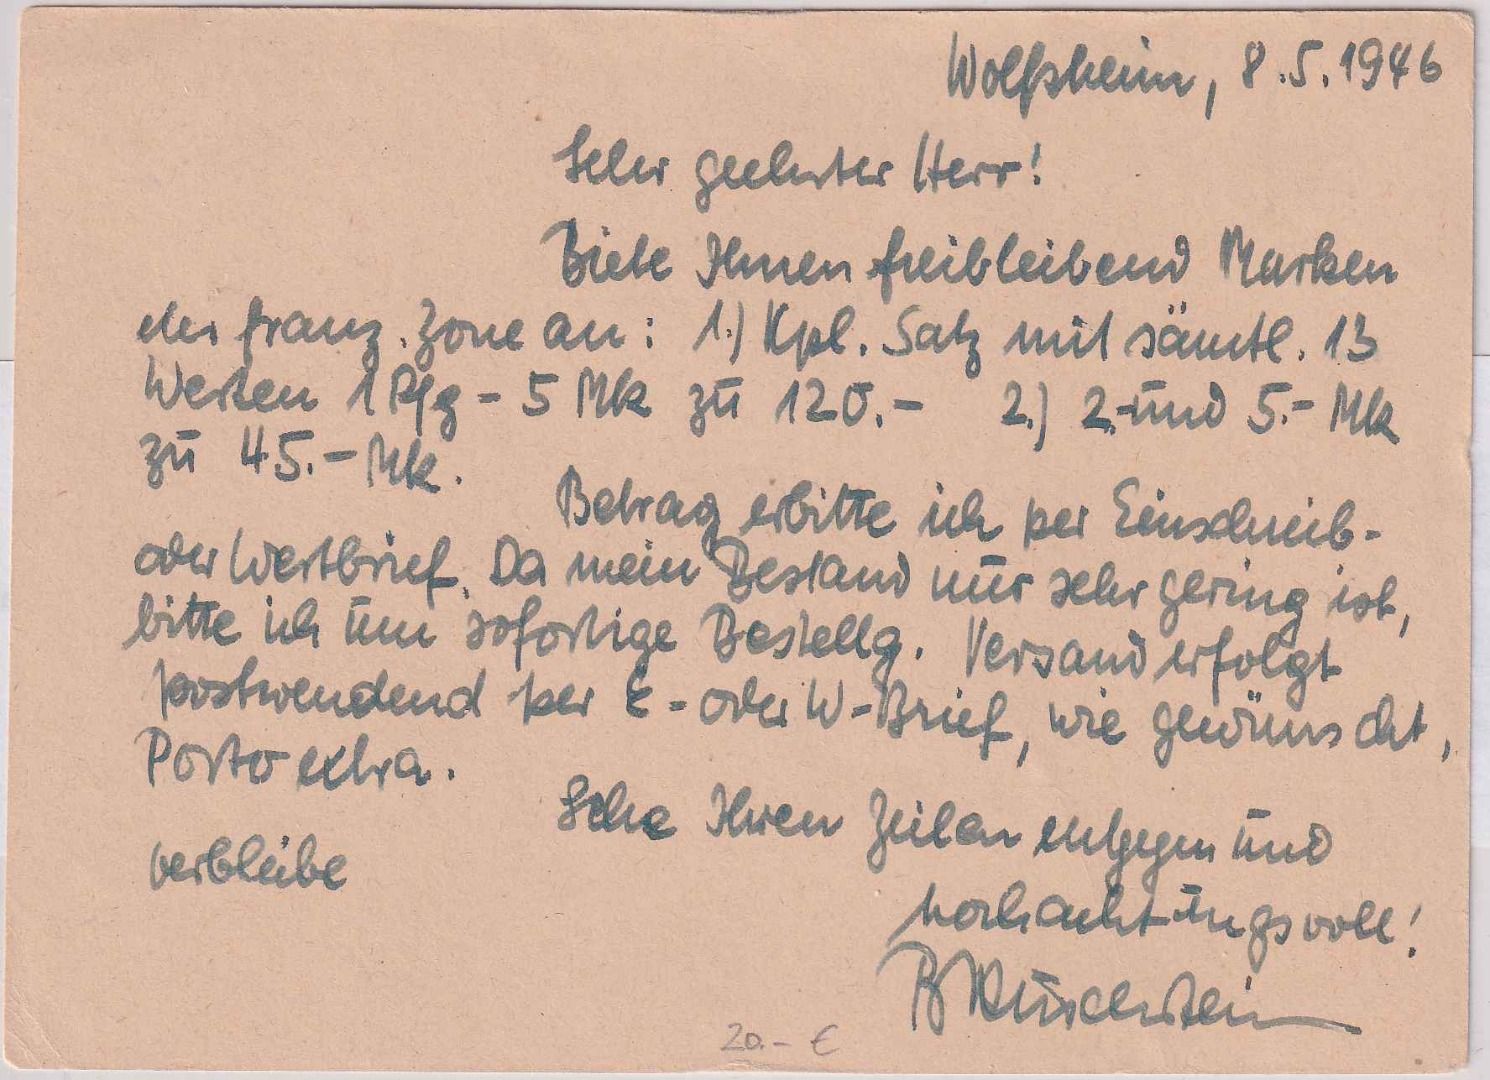 Wolfsheim, 8.5.1946
Sehr geehrter Herr!
Biete Ihnen freibleibend Marken
der franz. Zone an: 1.) Kpl. Satz mit sämtl. 13
Werten 1 Pfg - 5 Mk zu 120.- 2.) 2.- und 5.- Mk
zu 45.- Mk.
Betrag erbitte ich per Einschreib-
oder Wertbrief. Da mein Bestand nur sehr gering ist,
bitte ich um sofortige Bestellg. Versand erfolgt
postwendend per E- oder W-Brief, wie gewünscht,
Porto extra.
Sehe Ihren Zeilen entgegen und
verbleibe
hochachtungsvoll!
20.- €